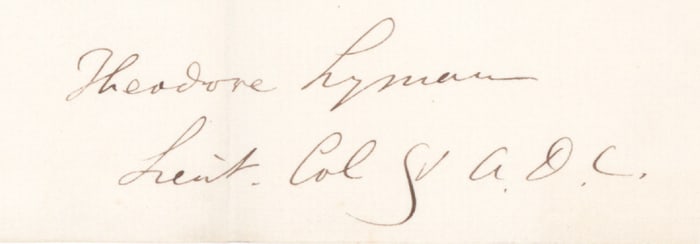 Theodore Lyman
Lieut. Col & A.D.C.